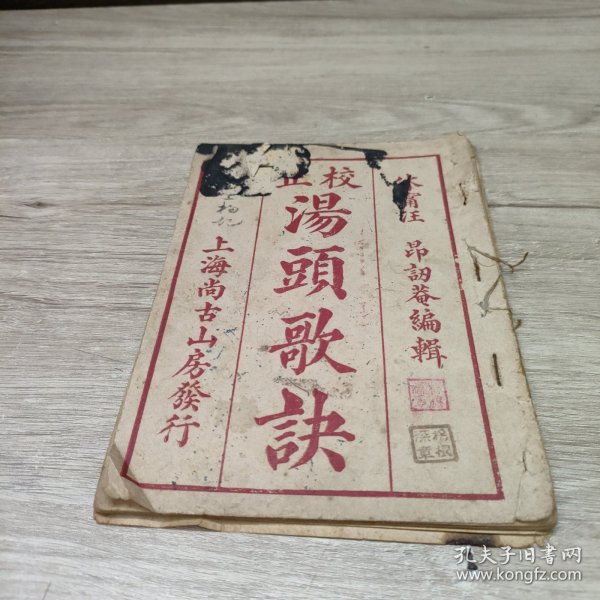 休甯汪　昂訒菴編輯
校正
湯頭歌訣
上海尚古山房發行
孔夫子旧书网
www.kongfz.com